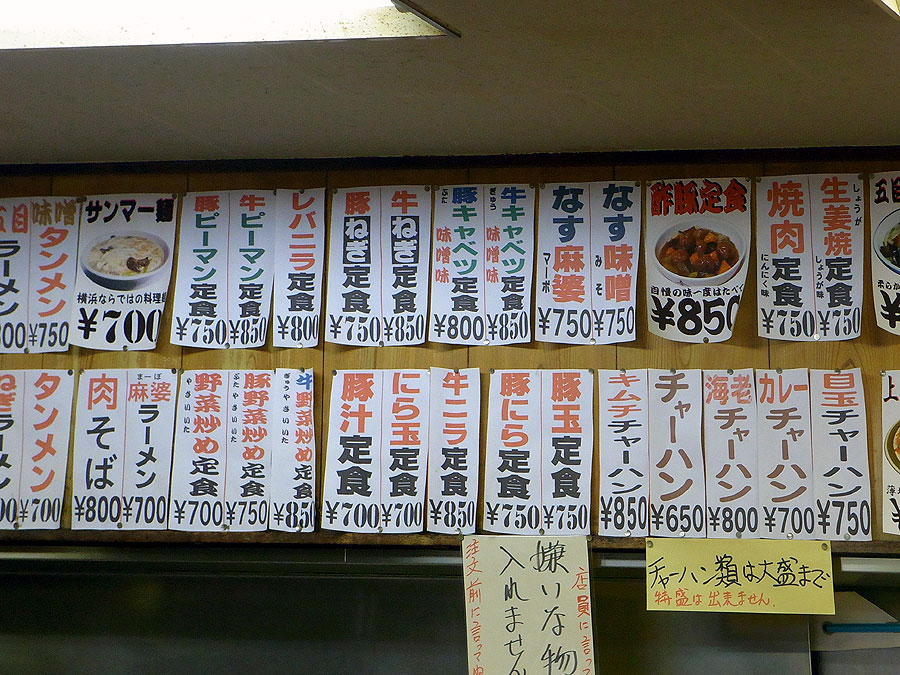 五目
ラーメン
味噌
タンメン
¥750
サンマー麺
横浜ならではの料理
¥700
豚ピーマン定食
¥750
牛ピーマン定食
¥850
レバニラ定食
¥800
豚ねぎ定食
¥750
牛ねぎ定食
¥850
ぶた
豚キャベツ定食
味噌味
¥800
ぎゅう
牛キャベツ定食
味噌味
¥850
なす麻婆
マーボ
¥750
なす味噌
みそ
¥750
酢豚定食
自慢の味一度はたべて
¥850
焼肉定食
にんにく味
¥750
生姜焼定食
しょうが
しょうが味
¥750
五目
タンメン
¥700
肉そば
¥800
まーぼ
麻婆ラーメン
¥700
野菜炒め定食
やさいいた
¥700
豚野菜炒め定食
ぶたやさいいた
¥750
牛野菜炒め定食
ぎゅうやさいいた
¥850
豚汁定食
¥700
にら玉定食
¥700
牛ニラ定食
¥850
豚にら定食
¥750
豚玉定食
¥750
キムチチャーハン
¥850
チャーハン
¥650
海老チャーハン
¥800
カレーチャーハン
¥700
目玉チャーハン
¥750
店員に言って
嫌いな物
入れません
注文前に言って
チャーハン類は大盛まで
特盛は出来ません。